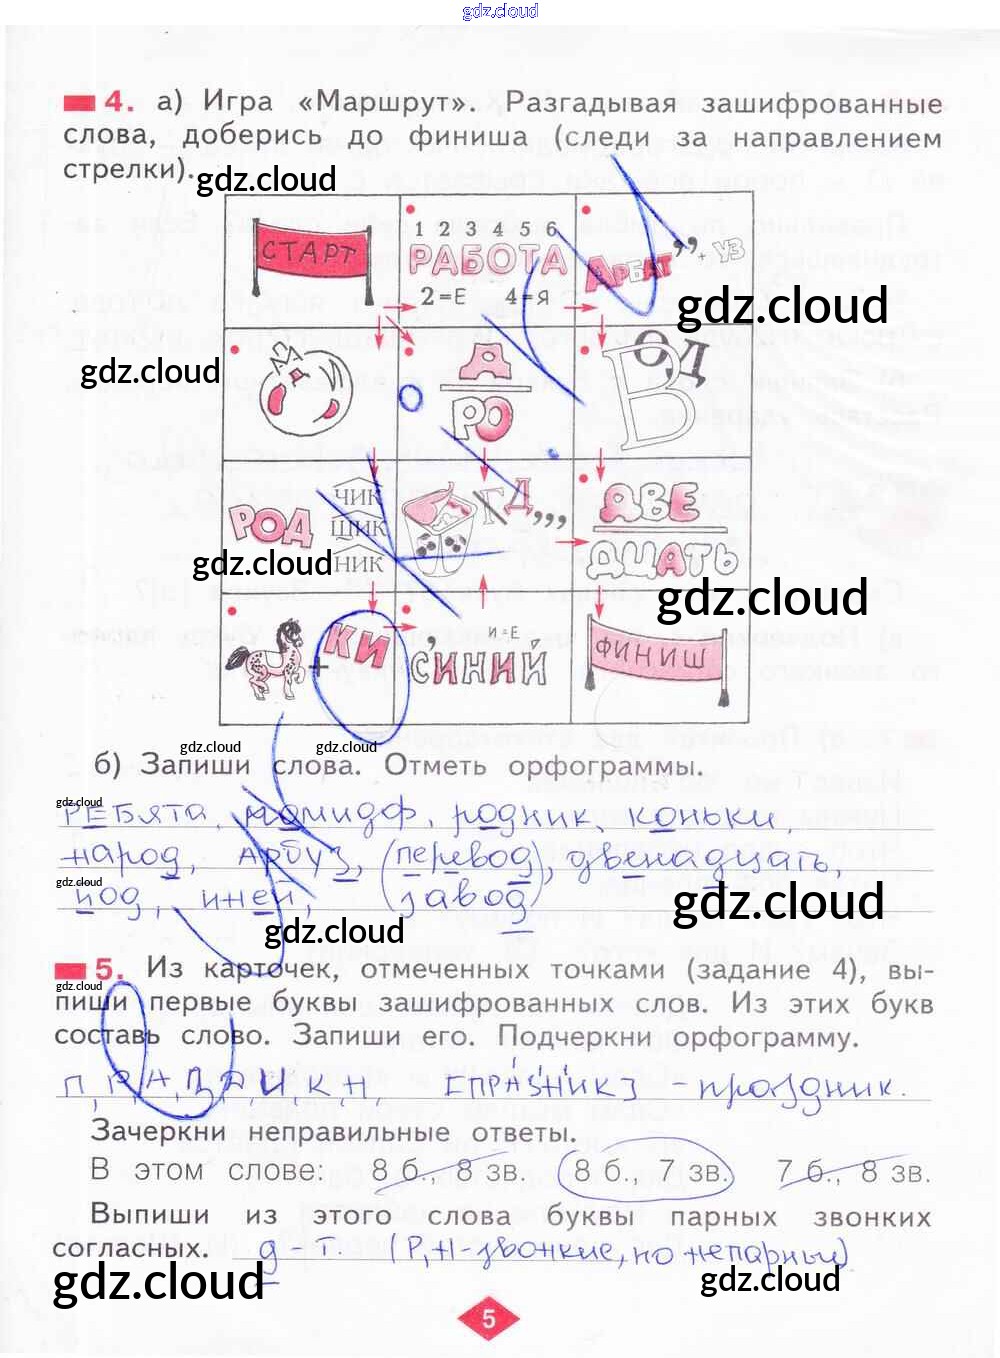 gdz.cloud
4. а) Игра «Маршрут». Разгадывая зашифрованные
слова, доберись до финиша (следи за направлением
стрелки).
gdz.cloud
СТАРТ
1 2 3 4 5 6
РАБОТА
2=Е 4=Я
АРБАТ ,, + УЗ
gdz.cloud
gdz.cloud
А
РО
В
ОД
РОД
ЧИК
ЩИК
НИК
Г Д,,,,
ДВЕ
ДЦАТЬ
gdz.cloud
gdz.cloud
+ КИ
И=Е
СИНИЙ
ФИНИШ
gdz.cloud gdz.cloud
б) Запиши слова. Отметь орфограммы.
gdz.cloud
РЕБята, помидор, родник, коньки,
народ, Арбуз, (перевод), двенадцать,
gdz.cloud
иней, завод
gdz.cloud
gdz.cloud
5. Из карточек, отмеченных точками (задание 4), вы-
gdz.cloud
пиши первые буквы зашифрованных слов. Из этих букв
составь слово. Запиши его. Подчеркни орфограмму.
П, Р, А, З, Д, И, К, Н, [ПРАЗ'Н'ИК] - праздник.
Зачеркни неправильные ответы.
В этом слове: 8 б., 8 зв. 8 б., 7 зв. 7 б., 8 зв.
Выпиши из этого слова буквы парных звонких
согласных. д (Р, Н-звонкие, но непарные)
gdz.cloud gdz.cloud gdz.cloud
5